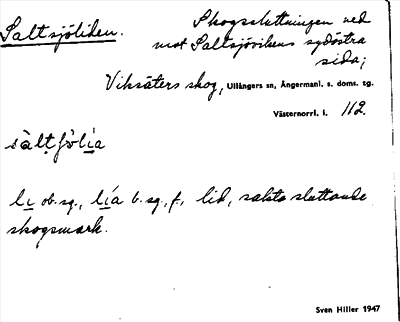 Saltsjöliden.
Skogssluttningen ned
mot Saltsjövikens sydöstra
sida;
Viksäters skog, Ullångers sn, Ångermanl. s. doms. tg.
Västernorrl. l. 112.
lı̲ ob. sg., lı̲́a b. sg., f., lid, sakta sluttande
skogsmark.
Sven Hiller 1947